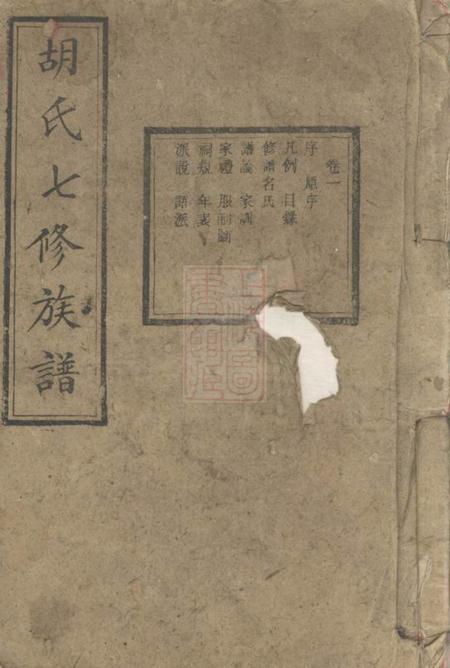 胡氏七修族譜
卷一
序 原序
凡例 目錄
修譜名氏
譜論 家訓
家禮 服制圖
祠規 年表
派說 語派